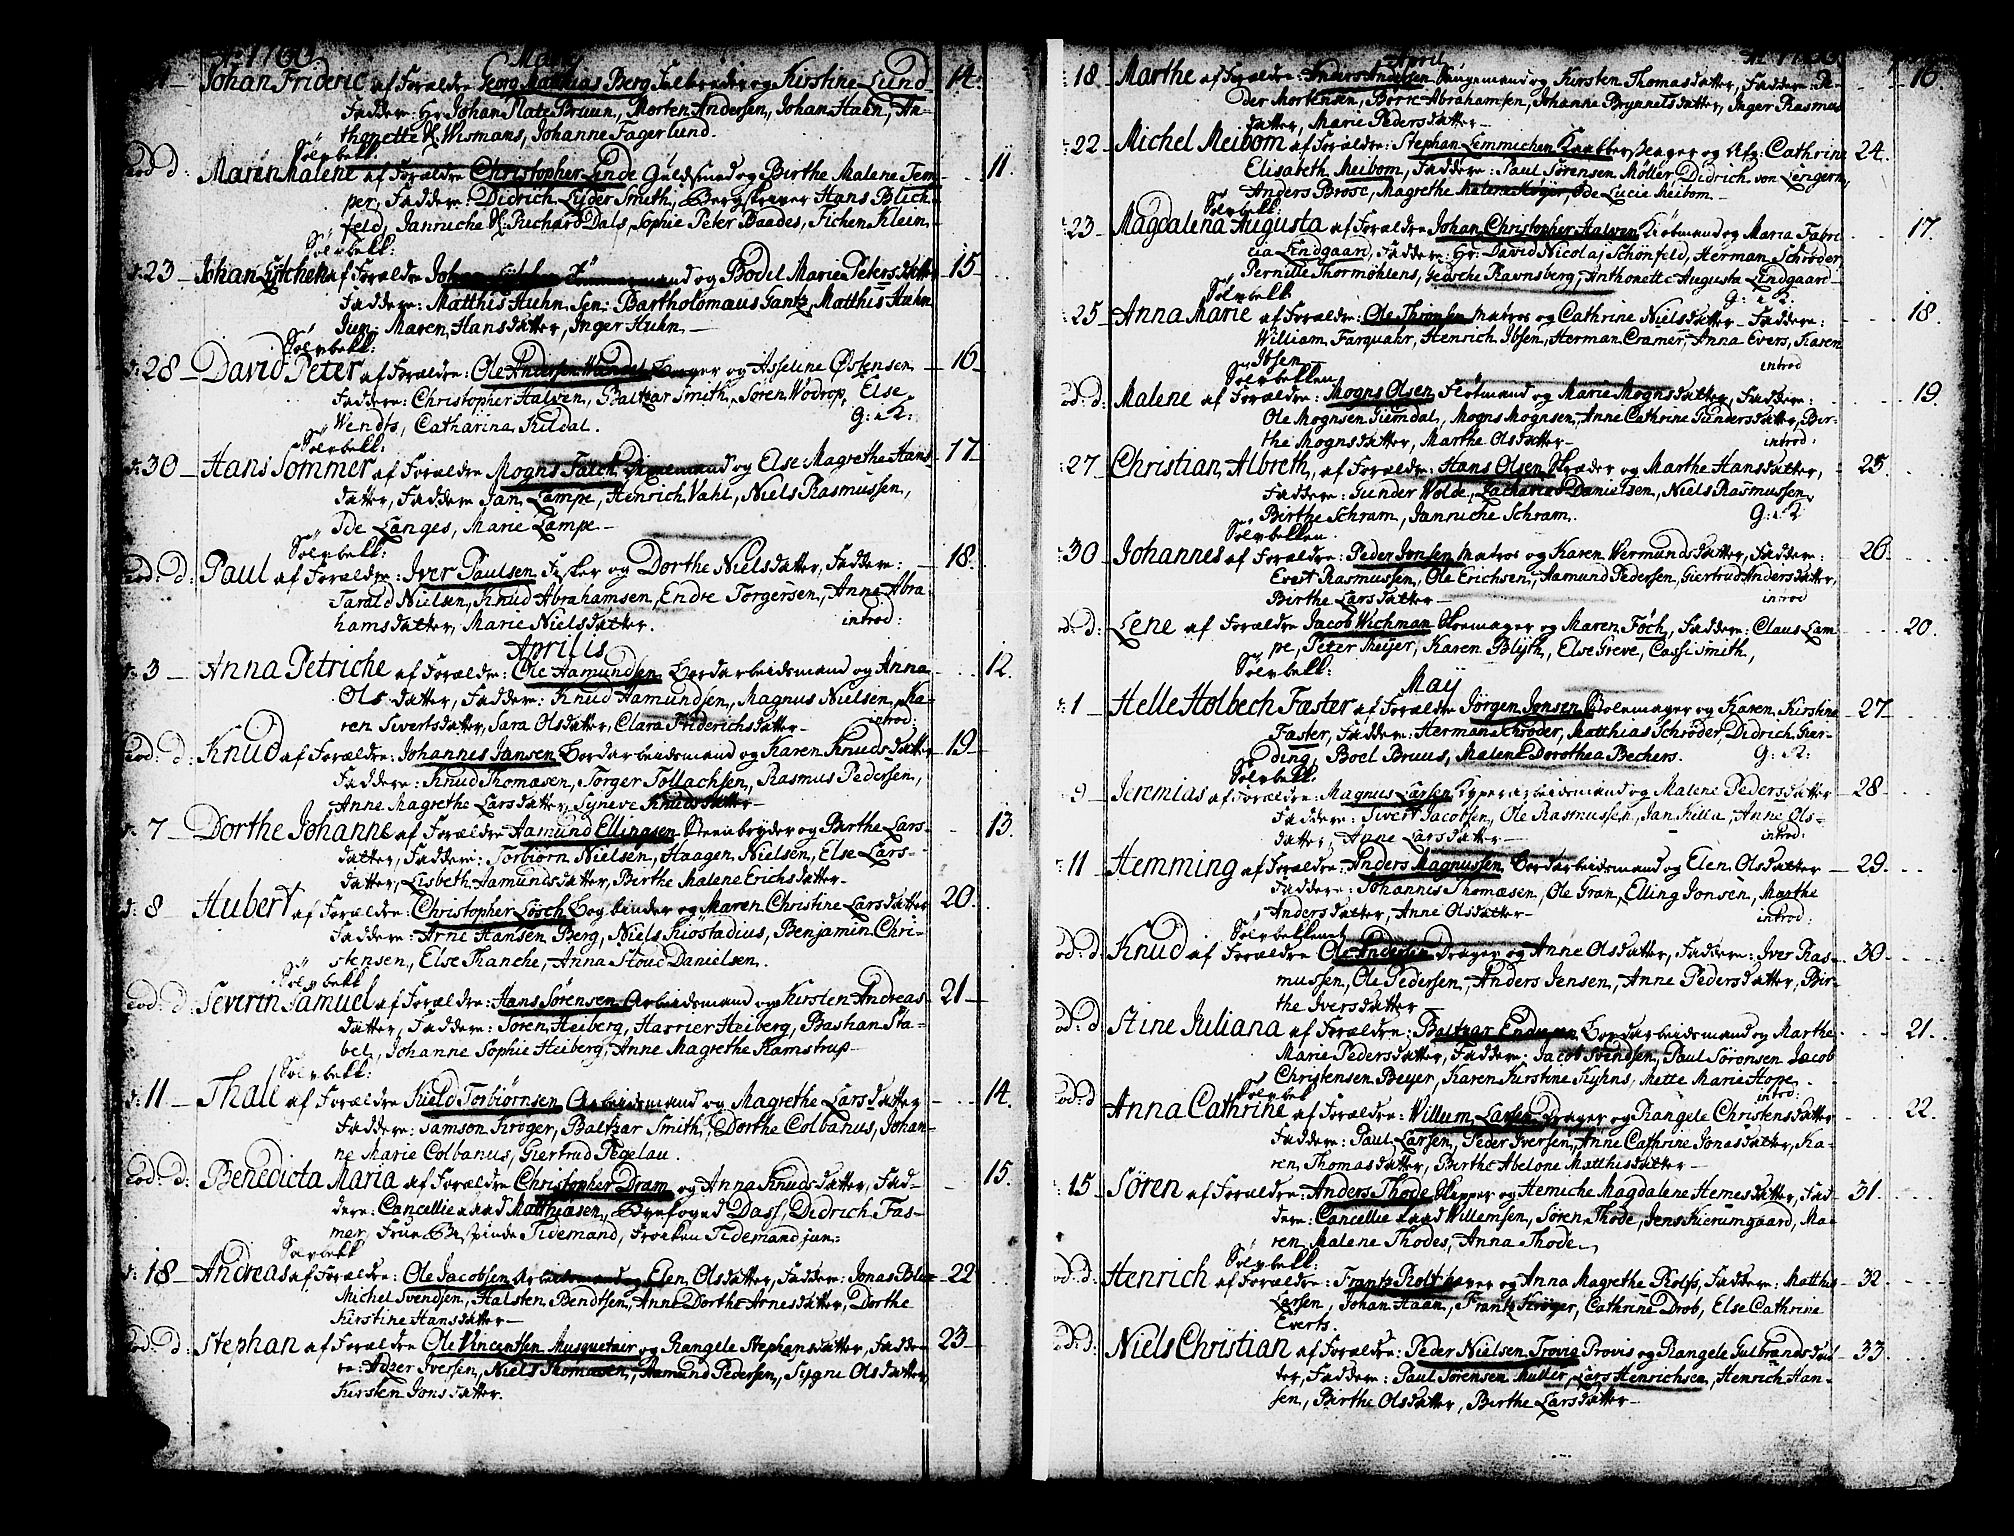 Ao 1760. Marty
Johan Frideric af Forældre Georg Matthias Berg og Kirstine Lund 14.
Faddere: Hr Johan Plate Bruun, Morten Andersen, Johan Hahn, An-
thonette Sl. Wismans, Johanne Fagerlund.
Sölvbell:
eod. d: Maren Malene af Forældre Christopher Linde Guldsmed og Birthe Malene Tem- 11.
per, Faddere: Didrich Lyder Smith, Bergskriver Hans Blich-
feld, Janniche Sl: Richard Dals, Sophie Peter Baades, Sichen Klein.
Sölvbell:
d: 23 Johan Lytchen af Forældre og Bodil Marie Petersdatter 15
Faddere: Matthis Huhn Sen: Bartholomæus Gantz, Matthis Huhn
Jun: Maren Hansdatter, Inger Huhn.
Sölvbell:
d: 28 David Peter af Forældre: Ole Andersen Wendel og Asseline Østensen 16
Faddere: Christopher Halven, Baltzar Smith, Sören Wodrop, Else
Wendts, Catharina Kildal. g: 2:
Sölvbell:
d: 30 Hans Sommer af Forældre Mogns Falck og Else Magrethe Hans- 17
datter, Faddere Jan Lampe, Henrich Vahl, Niels Rasmussen,
Ide Langes, Marie Lampe
Sölvbell:
eod: d: Paul af Forældre: Iver Paulsen Fisker og Dorthe Nielsdatter, Faddere: 18.
Tarald Nielsen, Knud Abrahamsen, Endre Torgersen, Anne Abra-
hamsdatter, Marie Nielsdatter. introd:
Aprilis
d: 3 Anna Petriche af Forældre: Ole Aamundsen Bordarbeidsmand og Anna 12.
Olsdatter, Faddere: Knud Aamundsen, Magnus Nielsen, Ka-
ren Sivertsdatter, Sara Olsdatter, Clara Friderichsdatter introd:
eod: d: Knud af Forældre: Johannes Jansen Bordarbeidsmand og Karen Knudsdatter 19
Faddere: Knud Thomæsen, Torger Tollachsen, Rasmus Pedersen,
Anne Magrethe Larsdatter, Syneve Knudsdatter
d: 7 Dorthe Johanne af Forældre Aamund Ellingsen Steenbryder og Berthe Lars- 13.
datter, Faddere: Torbiørn Nielsen, Haagen Nielsen, Else Lars-
datter, Lisbeth Aamundsdatter, Berthe Malene Erichsdatter
d: 8 Hubert af Forældre: Christopher Lösch Bogbinder og Maren Christine Larsdatter 20.
Faddere: Arne Hansen Berg, Niels Kiøstadius, Benjamin Chri-
stensen, Else Thanche, Anna Stoue Danielsen.
Sölvbell
eod: d: Severin Samuel af Forældre: Hans Sörensen Arbeidsmand og Kirsten Andreas- 21
datter, Faddere: Sören Heiberg, Harrier Heiberg, Bastian Sta-
bel, Johanne Sophie Heiberg, Anne Magrethe Ramstrup
Sölvbell:
d: 11 Thale af Forældre Kield Torbiørnsen Arbeidsmand og Magrethe Larsdatter 14.
Faddere: Samson Krøger, Baltzar Smith, Dorthe Colbanus, Johan-
ne Marie Colbanus, Giertrud Tegelau.
eod. d: Benedicta Maria af Forældre Christopher Dram og Anna Knudsdatter, Fad- 15.
dere: Cancellieraad Matthiasen, Byefoged Dass, Didrich Fas-
mer, Frue Tidemand, Frøeken Tidemand jun:
Sölvbell
d: 18 Andreas af Forældre: Ole Jacobsen Arbeidsmand og Elen Olsdatter, Faddere: Jonas 22
Michel Svendsen, Halsten Bendtsen, Anne Dorthe Arnesdatter, Dorthe
Kirstine Hansdatter
eod: d: Stephan af Forældre Ole Vincentsen Musquetair og Rangele Stephansdatter, Fadde- 23
re: Adzer Iversen, Niels Thomæsen, Aamund Pedersen, Signe Olsdatter,
Kirsten Jonsdatter.
April Ao 1760.
18 Marthe af Forældre: Anders Andersen og Kirsten Thomasdatter, Faddere: 16.
der Mortensen, Børre Abrahamsen, Johanne Brynnelsdatter, Inger Rasmus
datter, Marie Pedersdatter
22 Michel Meibom af Forældre: Stephan Lemmichen Kaabberslager og Cathrine 24.
Elisabeth Meibom, Faddere: Paul Sörensen Möller, Didrich von Lengern,
Anders Brose, Magrethe Malene Krøger, Ide Lucie Meibom
Sölvbell:
23 Magdalena Augusta af Forældre Johan Christopher Halven Kiöbmand og Maria Fabri- 17.
cia Lindgaard, Faddere: Hr. David Nicolaj Schönfeld, Herman Schröder,
Pernille Thormöhlens, Gedsche Ravnsberg, Anthonette Augusta Lindgaard
Sölvbell: g: 2:
25 Anna Marie af Forældre: Ole Thronsen Matros og Cathrine Nielsdatter Faddere: 18.
William Farquahr, Henrich Ibsen, Herman Cramer, Anna Evers, Karen
Ibsen introd
Sölvbellen
eod: d: Malene af Forældre: Mogns Olsen Flötmand og Marie Mognsdatter, Faddere: 19.
Ole Mognsen Giemdal, Mogns Mognsen, Anne Cathrine Gundersdatter, Bir-
the Mognsdatter, Marthe Olsdatter introd:
27 Christian Albreth, af Forældre: Hans Olsen Skræder og Marthe Hansdatter, 25
Faddere: Gunder Wolde, Zacharias Danielsen, Niels Rasmussen,
Birthe Schram, Janniche Schram. g: 2
Sölvbellen.
30 Johannes af Forældre: Peder Jonsen Matros og Karen Wermundsdatter, Faddere: 26
Evert Rasmussen, Ole Erichsen, Aamund Pedersen, Giertrud Andersdatter,
Birthe Larsdatter introd
od: d: Lene af Forældre Jacob Wichman Skoemager og Maren Foch, Faddere: Claus Lam- 20.
pe, Peter Meyer, Karen Blyth, Else Greve, Cassi Smith,
Sölvbell:
May
1 Helle Holbech Faster af Forældre Jörgen Jonsen og Karen Kirstine 27
Faster, Faddere: Herman Schröder, Matthias Schröder, Didrich Gier-
ding, Boel Bruus, Malene Dorothea Bechers. g: 2:
Sölvbell:
9 Jeremias af Forældre: Magnus Larsen Kyperarbeidsmand og Malene Pedersdatter 28
Faddere: Sivert Jacobsen, Ole Rasmussen, Jan Killa, Anne Ols-
datter, Anne Larsdatter introd:
11 Hemming af Forældre: Anders Magnussen Bordarbeidsmand og Elen Olsdatter 29.
Faddere: Johannes Thomæsen, Ole Gran, Elling Jonsen, Marthe
Andersdatter, Anne Olsdatter introd:
Sölvbellenet
od: d: Knud af Forældre Ole Andersen Drager og Anne Olsdatter, Faddere: Iver Ras- 30.
mussen, Ole Pedersen, Anders Jensen, Anne Pedersdatter, Bir-
the Iversdatter
od: d Stine Juliana af Forældre: Baltzar Endresen Bordarbeidsmand og Marthe 21.
Marie Pedersdatter, Faddere: Jacob Svendsen, Paul Sörensen Jacob
Christensen Beyer, Karen Kirstine Kuhns, Mette Marie Hope
Sölvbell introd:
eod: d Anna Cathrine af Forældre: Willum Larsen Drager og Rangele Christensdatter 22.
Faddere: Paul Larsen, Peder Iversen, Anne Cathrine Jonasdatter, Ka-
ren Thomasdatter, Berthe Abelone Matthisdatter
15 Sören af Forældre: Anders Thode Skipper og Hemiche Magdalene Hemesdatter, Fad- 31.
dere: Cancellieraad Willemsen, Sören Thode, Jens Kierumgaard, Ma-
ren Malene Thodes, Anna Thode
Sölvbell:
od: d. Henrich af Forældre: Frantz Rolf og Anna Magrethe Rolfs, Faddere: Matthis 32
Larsen, Johan Haan, Frantz Krøger, Cathrine Drob, Else Cathrine
Everts.
d: d: Niels Christian af Forældre: Peder Nielsen Trovig Provis og Rangele Gulbrandsdat- 33.
ter, Faddere: Paul Sörensen Muller, Lars Henrichsen, Henrich Han-
sen, Birthe Olsdatter, Berthe Larsdatter